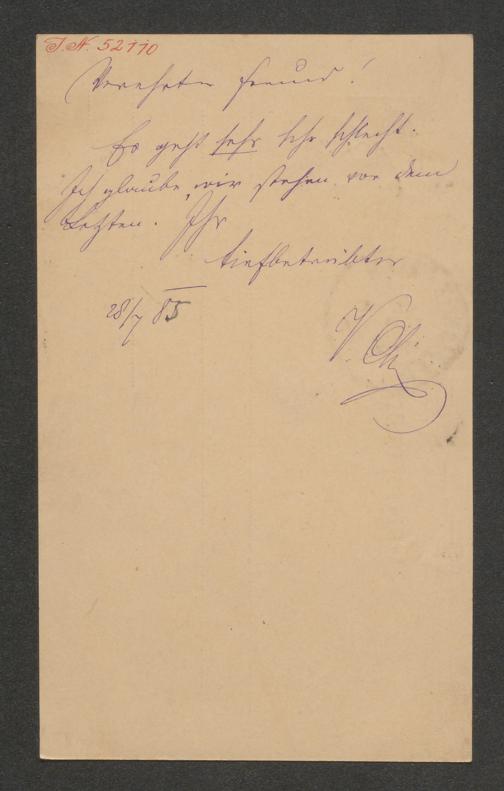 I.N. 52110
Verehrter Freund!
Es geht sehr sehr schlecht.
Ich glaube, wir stehen vor dem
Letzten. Ihr
tiefbetrübter
28/7 85
V.